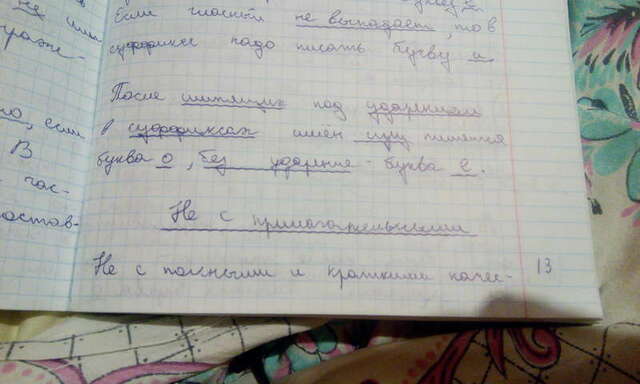 не
Если гласный не выпадает, то в
суффиксе надо писать букву и.
После шипящих под ударением
в суффиксах имён сущ пишется
буква о, без ударения - буква е.
но, если
В
час-
остав-
Не с прилагательными
Не с полными и краткими каче-
13